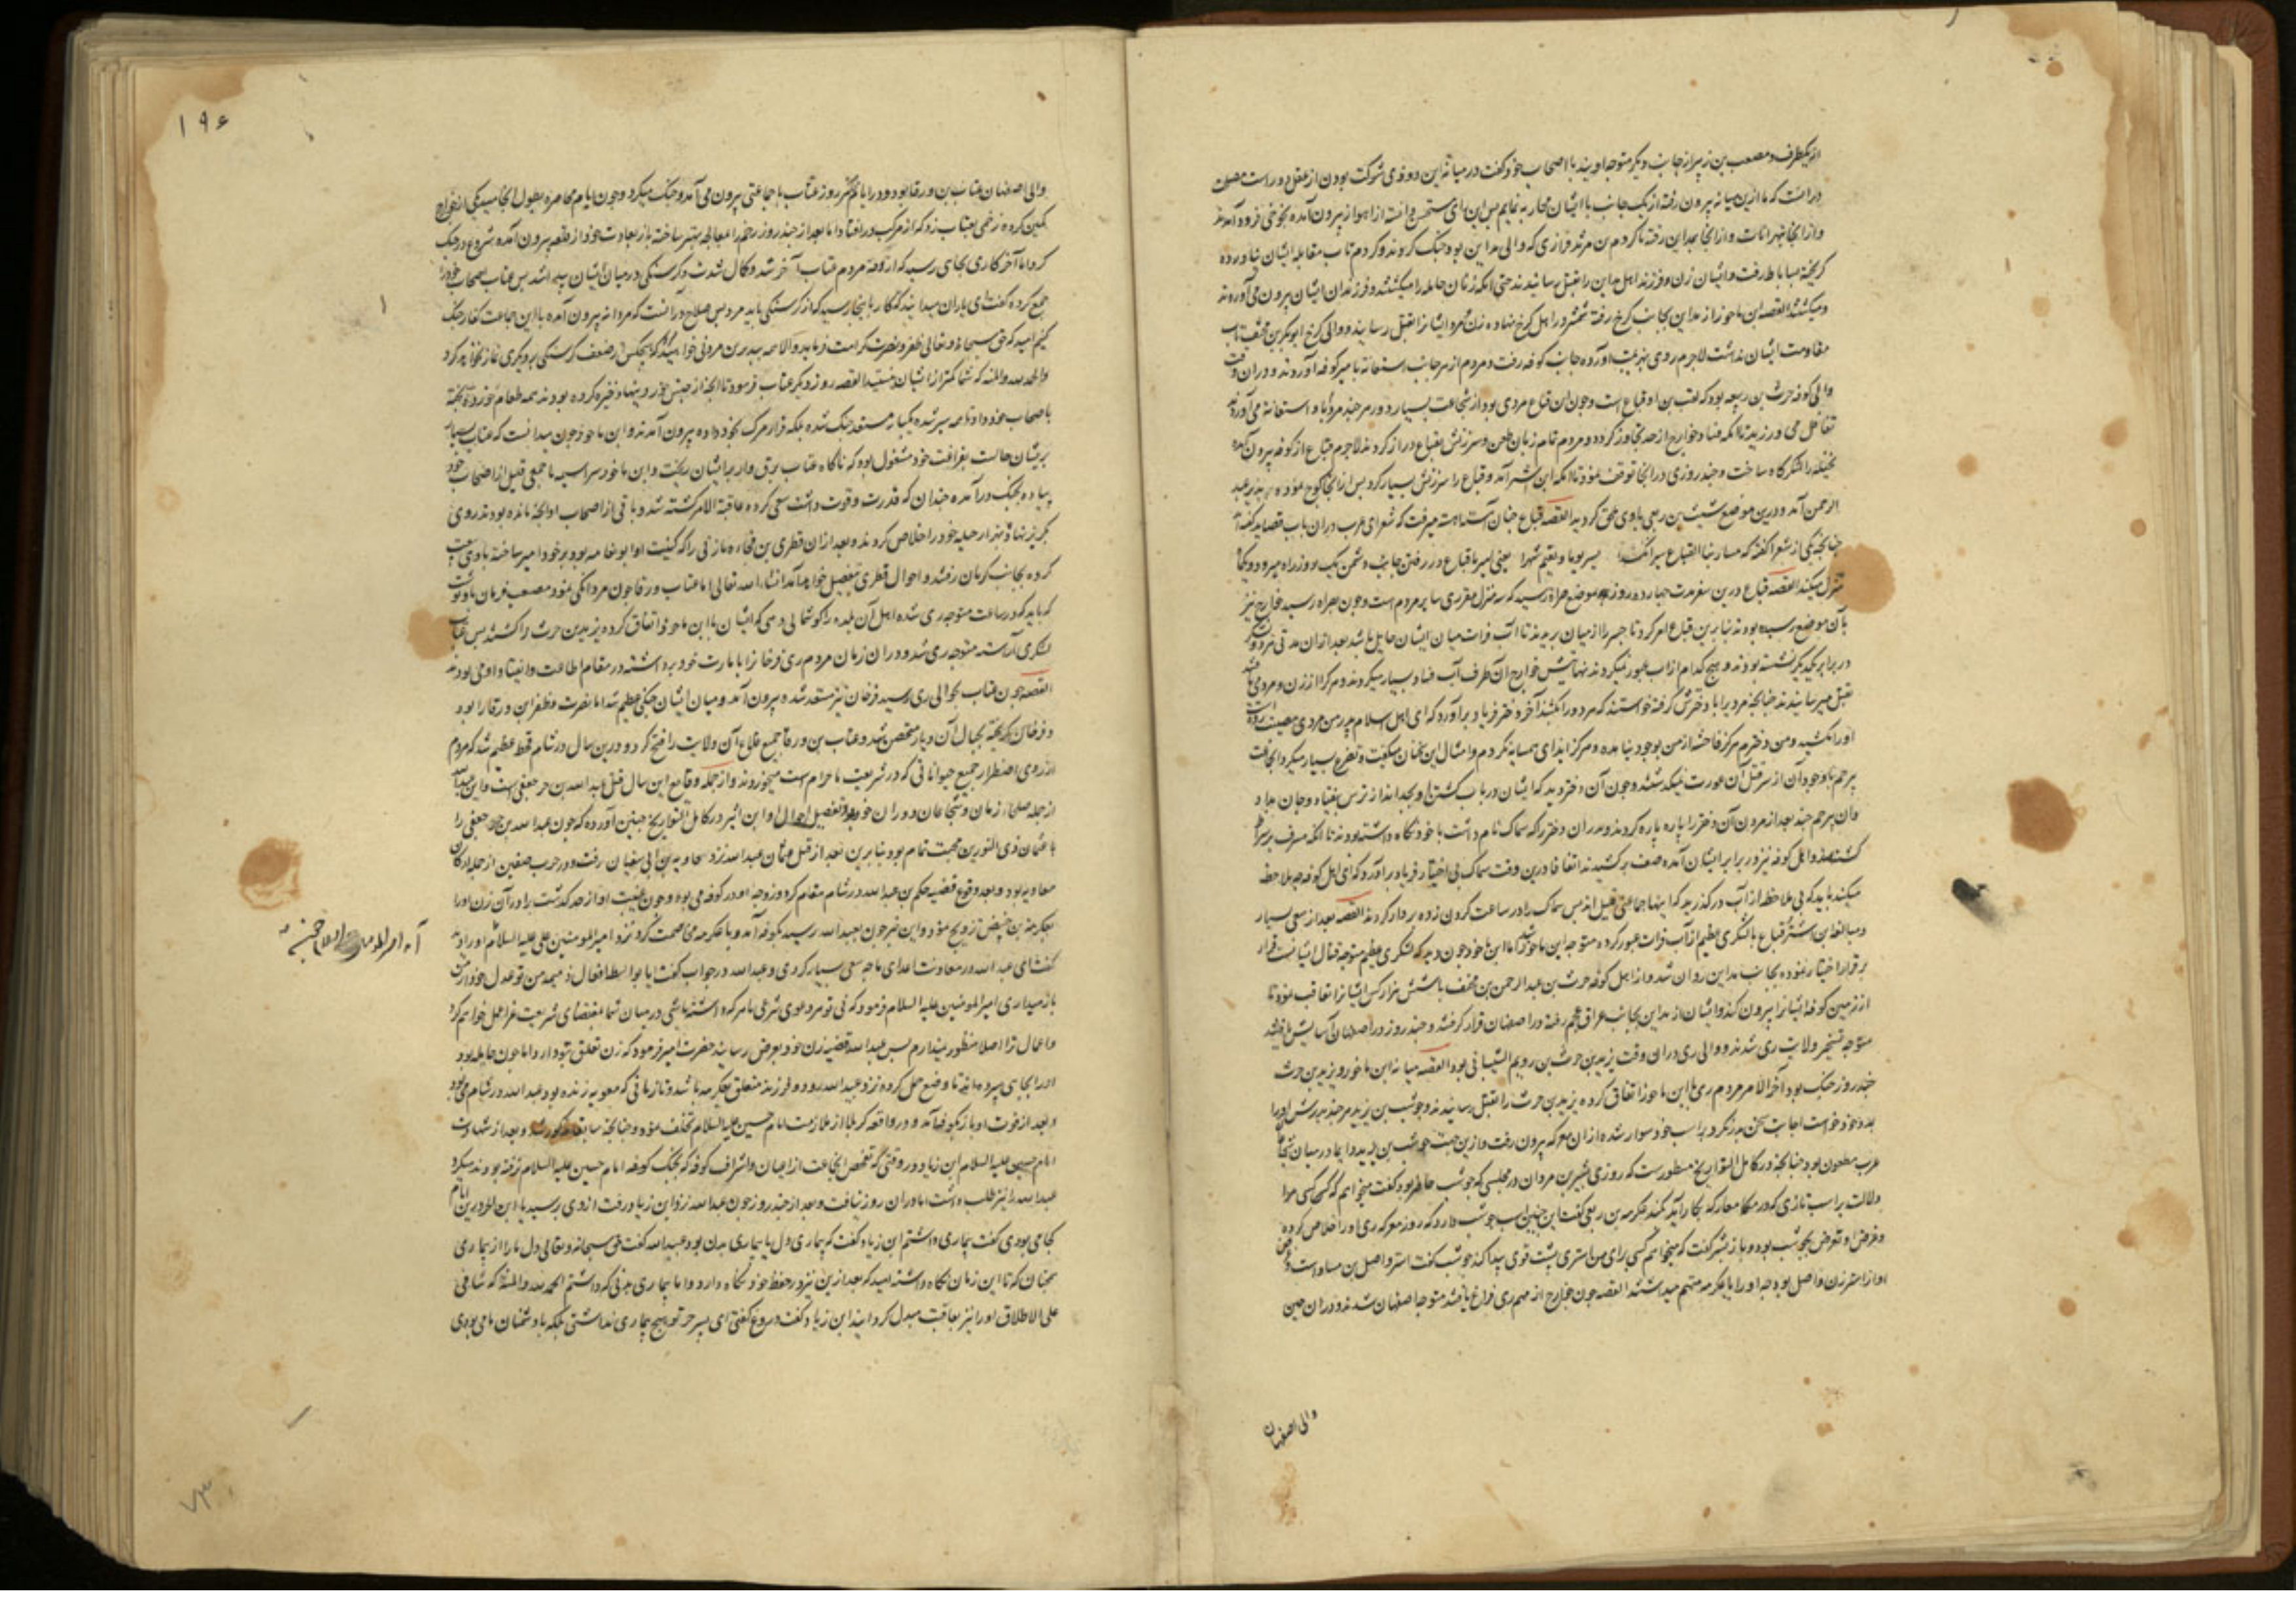 از یکطرف و مصعب بن زبیر از جانب دیگر متوجه اویند با اصحاب خود گفت در میانه این دو ذی شوکت بودن از عقل دور است مصلحت
در آنست که ما ازین میانه بیرون رفته از یک جانب با ایشان محاربه نماییم پس این رای مستحسن داشته از اهواز بیرون آمده بجوخی فرود آمدند
و از آنجا بنهروانات و از آنجا بمداین رفته با کردم بن مرثد فزاری که والی مداین بود جنگ کردند و کردم تاب مقابله ایشان نیاورده
گریخته بساباط رفت و ایشان زن و فرزند اهل مداین را بقتل رسانیدند حتی آنکه زنان حامله را میکشتند و فرزندان ایشان بیرون می‌آوردند
و میکشتند القصه ابن ماحوز از مداین بجانب کرخ رفته شمشیر در اهل کرخ نهاده زن و مرد ایشانرا بقتل رسانیدند و والی کرخ ابوبکر بن مخنف تاب
مقاومت ایشان نداشت لاجرم روی بهزیمت آورده جانب کوفه رفت و مردم از هر جانب استغاثه بامیر کوفه آوردند و در آن وقت
والی کوفه حرث بن ربیعه بود که لقب بن او قباع است و چون این قباع مردی بود از شجاعت بسیار دور هر چند مردم باو استغاثه می‌آوردند
تغافل می‌ورزید تا آنکه فساد خوارج از حد تجاوز کرد و مردم تمام زبان طعن و سرزنش بقباع دراز کردند لاجرم قباع از کوفه بیرون آمده
نخیله را لشکرگاه ساخت و چند روزی در آنجا توقف نمود تا آنکه ابن اشتر آمد و قباع را سرزنش بسیار کرد پس از آنجا کوچ نموده بدیر عبد
الرحمن آمد و درین موضع شبث بن ربعی باوی ملحق گردید القصه قباع چنان آهسته آهسته میرفت که شعرای عرب در آن باب قصاید گفته‌اند
چنانچه یکی از شعرا گفته که سار بنا القباع سیرا نکرا یسیر یوما و یقیم شهرا یعنی سیر ما با قباع در رفتن جانب دشمن یک روز راه میرود و یکماه
منزل میکند القصه قباع درین سفر مدت چهارده روز بموضع صراة رسید که سه منزل مقرری سایر مردم است و چون بصراه رسید خوارج نیز
بآن موضع رسیده بودند بنابرین قباع امر کرد تا جسر را از میان بریدند تا آب فرات میان ایشان حایل باشد بعد از آن مدتی هر دو لشکر
در برابر یکدیگر نشسته بودند و هیچ کدام از آب عبور نمیکردند نهایتش خوارج آن طرف آب فساد بسیار میکردند و هر کرا از زن و مرد می‌یافتند
بقتل میرسانیدند چنانچه مردی را با دخترش گرفته خواستند که مرد را بکشند آخر دختر فریاد برآورد که ای اهل اسلام پدر من مردی مصیبت زده است
او را نکشید و من دخترم هرگز فاحشه از من بوجود نیامده و هرگز ایذای همسایه نکردم و امثال این سخنان میگفت و تضرع بسیار میکرد
کشته شد و اهل کوفه نیز در برابر ایشان آمده صف برکشیدند اتفاقا درین وقت سماک بی اختیار فریاد برآورد که ای اهل کوفه چه ملاحظه
میکنید باید که بی ملاحظه از آب درگذرید که اینها جماعتی قلیل‌اند پس سماک را در ساعت گردن زده بر دار کردند القصه بعد از سعی بسیار
و مبالغه ابن اشتر قباع با لشکری عظیم از آب فرات عبور کرده متوجه ابن ماحوز شد اما ابن ماحوز چون دید که لشکری عظیم متوجه قتال ایشانست فرار
بر قرار اختیار نموده بجانب مداین روان شد و از اهل کوفه حرث بن عبد الرحمن بن مخنف با شش هزار کس ایشانرا تعاقب نموده تا
از زمین کوفه ایشانرا بیرون کند و ایشان از مداین بجانب عراق عجم رفته در اصفهان قرار گرفتند و چند روز در اصفهان آسایش یافته
متوجه تسخیر ولایت ری شدند و والی ری در آن وقت یزید بن حرث بن رویم الشیبانی بود القصه میانه ابن ماحوز و یزید بن حرث
چند روز جنگ بود آخر الامر مردم ری با ابن ماحوز اتفاق کرده یزید بن حرث را بقتل رسانیدند و حوشب بن یزید هر چند پدرش او را
بمدد خود خواست اجابت سخن پدر نکرد و بر اسب خود سوار شده از آن معرکه بیرون رفت و ازین جهت حوشب بن یزید دایما در میان شجاعان
عرب مطعون بود چنانچه در کامل التواریخ مسطور است که روزی بشیر بن مروان در مجلسی که حوشب حاضر بود گفت میخواهم که کسی مرا
دلالت بر اسب تازی که در معارک بکار آید بکند عکرمه بن ربعی گفت این چنین اسب حوشب دارد که روز معرکه ری او را خلاص کرده
و غرض او تعرض بحوشب بود و باز بشر گفت که میخواهم کسی برای من استری پشت قوی پیدا کند حوشب گفت استر واصل بن مساور است
او از استر زن واصل بود چه او را با عکرمه متهم میداشتند القصه چون خوارج از مهم ری فراغ یافتند متوجه اصفهان شدند و در آن حین
والی اصفهان
۱۹۶
والی اصفهان عتاب بن ورقا بود و در ایام اکثر روز عتاب با جماعتی بیرون می‌آمد و جنگ میکرد و چون ایام محاصره بطول انجامید یکی از خوارج
کمین کرده زخمی بعتاب زد که از مرکب درافتاد اما بعد از چند روز زخم را معالجه بهتر ساخته باز بعادت خود از قلعه بیرون آمده شروع در جنگ
کرد اما آخر کار بجایی رسید که آزوقه مردم عتاب آخر شد و کال شدت و گرسنگی در میان ایشان پیدا شد پس عتاب اصحاب خود را
جمع کرده گفت ای یاران میدانید که کار باینجا رسید که از گرسنگی باید مرد پس صلاح در آنست که مردانه بیرون آمده با این جماعت کفار جنگ
کنیم امید که حق سبحانه و تعالی ظفر و نصرت کرامت فرماید
والحمد لله والمنه که شما کمتر از ایشان نیستید القصه روز دیگر عتاب فرمود تا آنچه از جنس خوردنیها ذخیره کرده بودند همه طعام پخته
باصحاب خود داد تا همه سیر شده یکبار مستعد جنگ شده بلکه قرار مرگ بخود داده بیرون آمدند و ابن ماحوز چون میدانست که عتاب بسیار
پریشان حالست بفراغت خود مشغول بود که ناگاه عتاب برق وار بر ایشان ریخت و ابن ماحوز سراسیمه با جمعی قلیل از اصحاب خود
پیاده بجنگ درآمده چندان که قدرت و قوت داشت سعی کرده عاقبة الامر کشته شد و باقی از اصحاب او آنچه مانده بودند روی
بگریز نهاده بهزار حیله خود را خلاص کردند و بعد از آن قطری بن فجاءه مازنی را که کنیت او ابو نعامه بود بر خود امیر ساخته باوی بیعت
کرده بجانب کرمان رفتند و احوال قطری بتفصیل خواهد آمد انشاء الله تعالی اما عتاب ورقا چون مردانگی نمود مصعب فرمان باو نوشت
که باید که در ساعت متوجه ری شده اهل آن بلده را گوشمالی دهی که ایشان با ابن ماحوز اتفاق کرده یزید بن حرث را کشتند پس عتاب
لشکری آراسته متوجه ری شد و در آن زمان مردم ری فرخانرا بامارت خود برداشته در مقام اطاعت و انقیاد او می‌بودند
القصه چون عتاب بحوالی ری رسید فرخان نیز مستعد شده بیرون آمد و میان ایشان جنگی عظیم شد اما نصرت و ظفر ابن ورقا را بود
و فرخان گریخته بجبال آن دیار متحصن شد و عتاب بن ورقا جمیع قلاع آن ولایت را فتح کرد و درین سال در شام قحط عظیم شد که مردم
از روی اضطرار جمیع حیواناتی که در شریعت ما حرام است میخوردند و از جمله وقایع این سال قتل عبید الله بن حر جعفی است و این عبید الله
از جمله صلحای زمان و شجاعان دوران خود بود و تفصیل احوال او ابن اثیر در کامل التواریخ چنین آورده که چون عبد الله بن حر جعفی را
با عثمان ذی النورین محبت تمام بود بنابرین بعد از قتل عثمان عبد الله نزد معاویه بن ابی سفیان رفت و در حرب صفین از جمله ارکان
معاویه بود و بعد وقوع قضیه حکم بن عبد الله در شام مقام کرد و زوجه او در کوفه می‌بود و چون غیبت او از حد گذشت برادر آن زن او را
بعکرمه بن خبیص تزویج نمود و این خبر چون بعبد الله رسید بکوفه آمد و با عکرمه مخاصمت کرد نزد امیر المومنین علی علیه السلام او را
گفت ای عبد الله در معاونت اعدای ما چه سعی بسیار کردی و عبد الله در جواب گفت آیا بواسطه افعال ذمیمه من تو عدل خود از من
باز میداری امیر المومنین علیه السلام فرمود که نی تو هر دعوی شرعی با هر که داشته باشی در میان شما بمقتضای شریعت غرا عمل خواهم کرد
و اعمال ترا اصلا منظور نمیدارم پس عبد الله قضیه زن خود بعرض رسانید حضرت امیر فرمود که زن تعلق بتو دارد اما چون حامله بود
او را بجایی سپرده باید تا وضع حمل کرده نزد عبید الله رود و فرزند متعلق بعکرمه باشد و تا زمانی که معویه زنده بود عبد الله در شام می‌بود
و بعد از فوت او باز بکوفه آمد و در واقعه کربلا از ملازمت امام حسین علیه السلام تخلف نمود چنانچه سابقا مذکور شد و بعد از شهادت
امام حسین علیه السلام ابن زیاد در وقتی که تفحص آنجماعت از اعیان و اشراف کوفه که بجنگ امام حسین علیه السلام نرفته بودند میکرد
عبد الله را نیز طلب داشت اما در آن روز نیافت و بعد از چند روز چون عبد الله نزد ابن زیاد رفت از وی پرسید یا ابن الحر درین ایام
کجا می‌بودی گفت بیماری داشتم ابن زیاد گفت که بیماری دل یا بیماری بدن بود عبید الله گفت حق سبحانه و تعالی دل ما را از بیماری
همچنان که تا این زمان نگاه داشته امید که بعد ازین نیز در حفظ خود نگاه دارد و اما بیماری بدنی که داشتم الحمد لله والمنة که شافی
علی الاطلاق او را نیز بعافیت مبدل گردانید ابن زیاد گفت دروغ گفتی ای پسر حر تو هیچ بیماری نداشتی بلکه با دشمنان ما می‌بودی